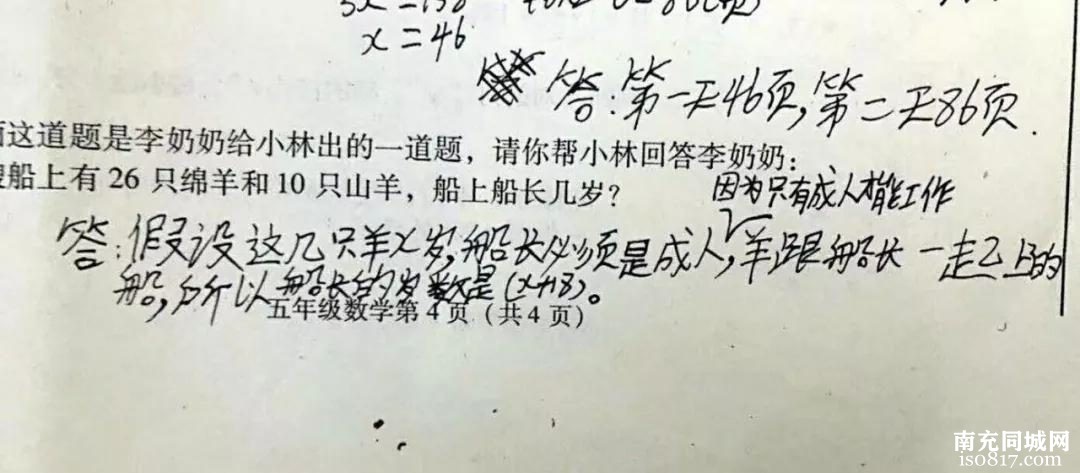 x=46
答:第一天46页,第二天86页.
这道题是李奶奶给小林出的一道题，请你帮小林回答李奶奶：
船上有 26 只绵羊和 10 只山羊，船上船长几岁？
因为只有成人才能工作
答:假设这几只羊X岁,船长必须是成人,羊跟船长一起上的
船,所以船长的岁数是(x+18)。
五年级数学第 4 页（共 4 页）
南充同城网
iso817.com